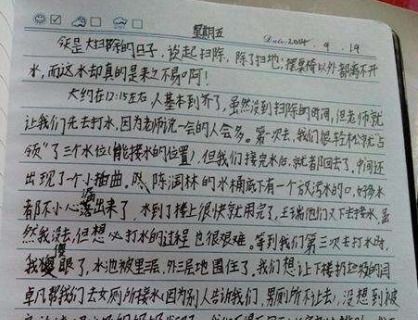 星期五
Date. 2014 . 9 . 19
又是大扫除的日子，说起扫除，除了扫地，摆桌椅以外都离不开
水，而这水却真的是来之不易啊！
大约在12:15左右人基本到齐了，虽然没到扫除的时间，但老师就
让我们先去打水，因为老师说一会的人会多。第一次去，我们很轻松就"占
领"了三个水位(能接水的位置)，但我们接完水后，就都回去了，中间还
出现了一个小插曲，陈润林的水桶底下有一个放污水的口，好多水
都不小心洒出来了，水到了楼上很快就用完了，王瑞他们又下去接水，虽
然我没去，但想必打水的过程也很艰难。等到我们第三次去打水时，
我傻眼了，水池被里三层，外三层地围住了，我们想让下楼扔垃圾的闫
卓凡帮我们去女厕所接水(因为别人告诉我们，男厕所不让去)，没想到被